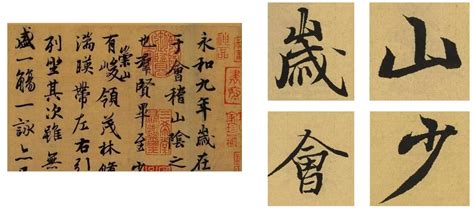 永和九年歲在
于會稽山陰之
也羣賢畢至
有崇山峻領茂林脩
湍暎帶左右引
列坐其次雖無
盛一觴一詠
歲 山
會 少